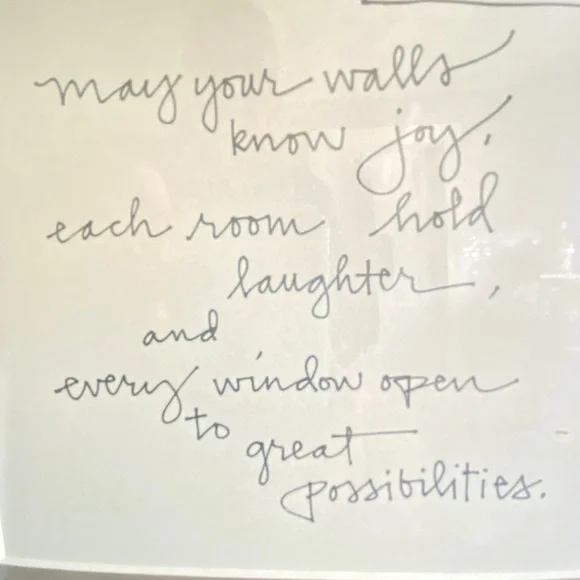 may your walls
know joy,
each room hold
laughter,
and
every window open
to
great
possibilities.